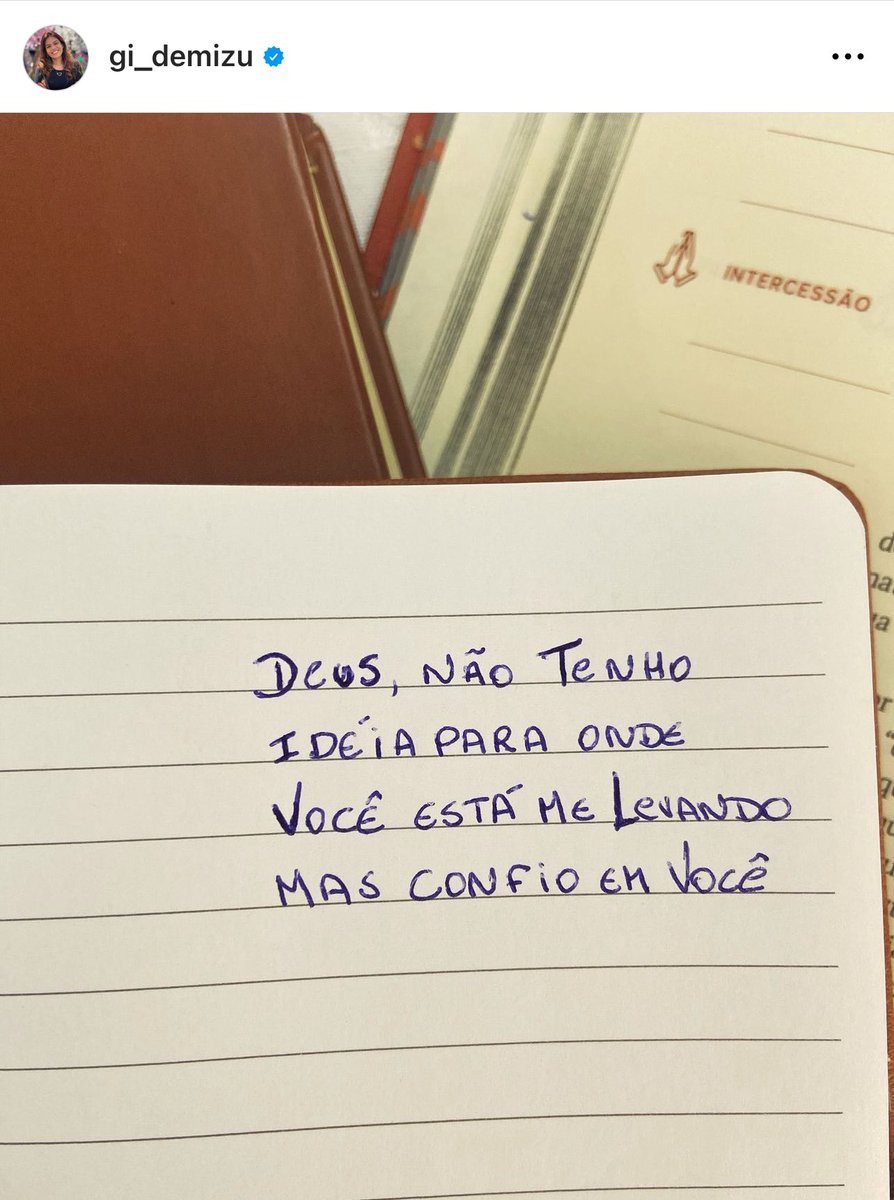 gi_demizu
INTERCESSÃO
DEUS, NÃO TENHO
IDÉIA PARA ONDE
VOCÊ ESTÁ ME LEVANDO
MAS CONFIO EM VOCÊ